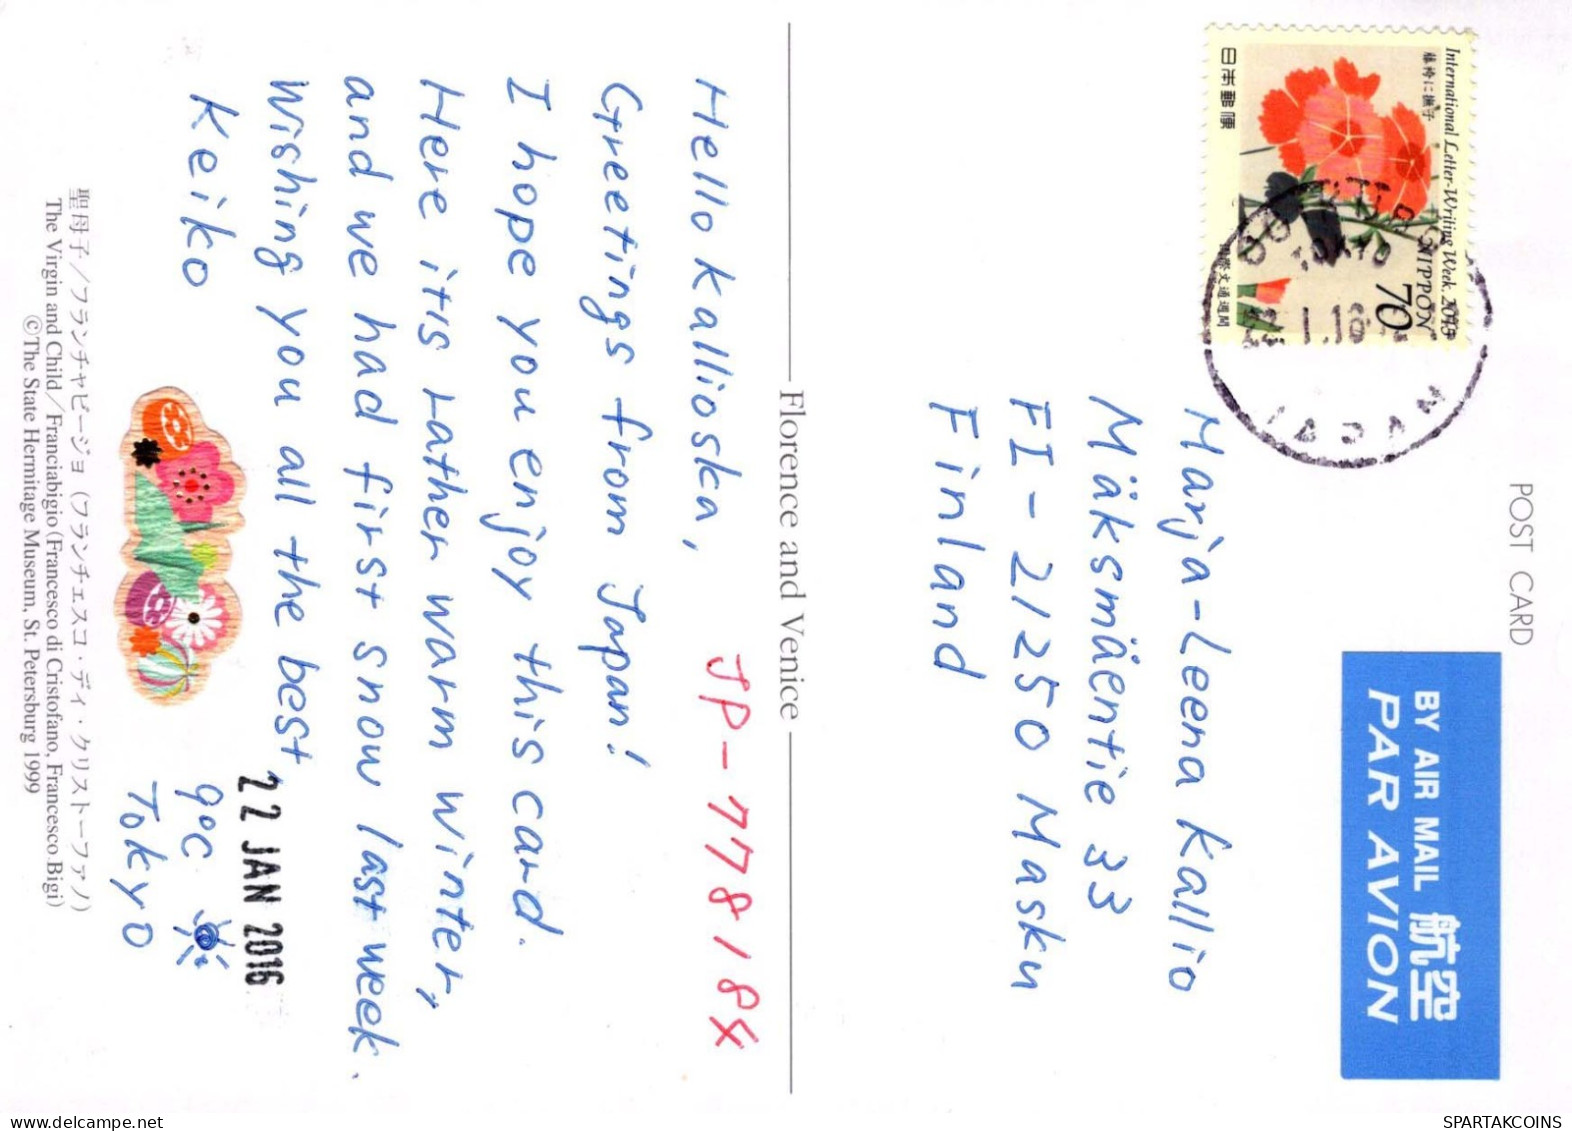 POST CARD
BY AIR MAIL 航空
PAR AVION
International Letter-Writing Week, 2015
藤袴に撫子
NIPPON
70
日本郵便
国際文通週間
JAPAN
Marja-Leena Kallio
Mäksmäentie 33
FI-21250 Masku
Finland
Florence and Venice
JP-778184
Hello kallioska,
Greetings from Japan!
I hope you enjoy this card.
Here itis rather warm winter,
and we had first snow last week.
Wishing you all the best,
Keiko
22 JAN 2016
9°C
Tokyo
聖母子／フランチャビージョ（フランチェスコ・ディ・クリストーファノ）
The Virgin and Child／Franciabigio（Francesco di Cristofano, Francesco Bigi）
©The State Hermitage Museum, St. Petersburg 1999
SPARTAKCOINS